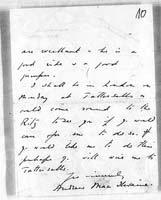 10
are excellent & he is a
good ride & a good
jumper.
I shall be in London on
Monday at Tattersalls &
could come round to the
Ritz to see you if you would
care for me to do so. If
you would like me to do this
perhaps you will wire me to
Tattersalls.
Yrs sincerely,
Andrew